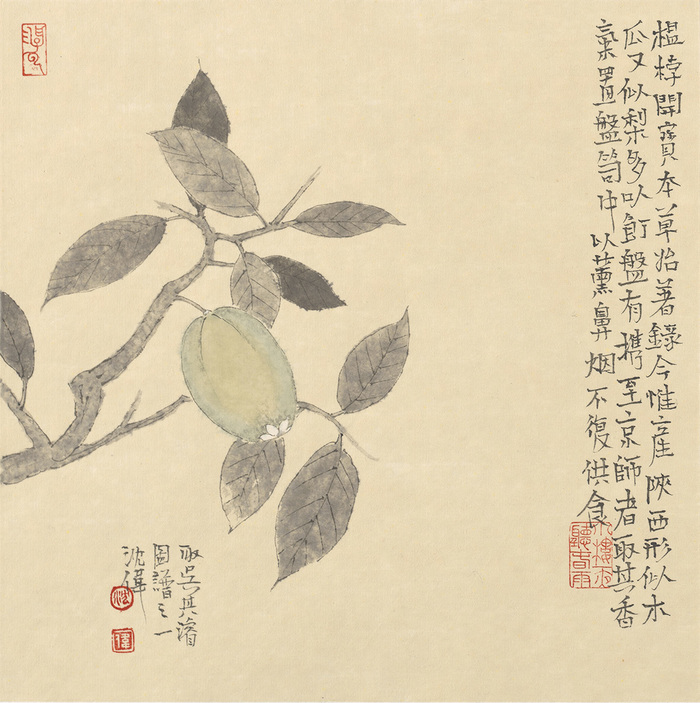 榲桲開寶本草始著錄今惟產陝西形似木
瓜又似梨多以飣盤有攜至京師者取其香
氣置盤笥中以薰鼻烟不復供食
小樓一夜
聽春雨
取吳其濬
圖譜之一
沈偉
沈
偉